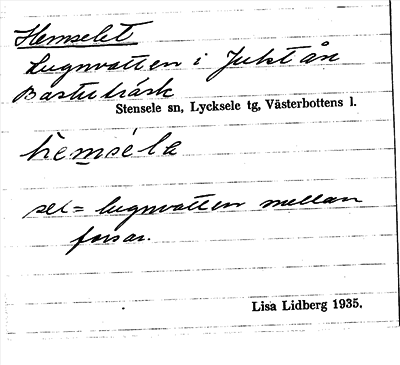 Hemselet
Lugnvatten i Juktån
Bastuträsk
Stensele sn, Lycksele tg, Västerbottens l.
hemsela
sel = lugnvatten mellan
forsar.
Lisa Lidberg 1935.